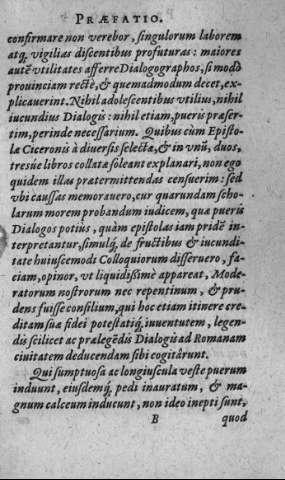 PRÆFATIO.
confirmare non verebor, singulorum laborem
atq; vigilias discentibus profuturas: maiores
autē vtilitates afferre Dialogographos, si modò
prouinciam rectè, & quemadmodum decet, ex-
plicauerint. Nihil adolescentibus vtilius, nihil
iucundius Dialogis: nihil etiam, pueris præser-
tim, perinde necessarium. Quibus cùm Episto-
læ Ciceronis à diuersis selectæ, & in vnū, duos,
tresúe libros collatæ soleant explanari, non ego
quidem illas prætermittendas censuerim: sed
vbi caussas memorauero, cur quarundam scho-
larum morem probandum iudicem, quæ pueris
Dialogos potiùs, quàm epistolas iam pridē in-
terpretantur, simulq́; de fructibus & iucundi-
tate huiuscemodi Colloquiorum disseruero, fa-
ciam, opinor, vt liquidissimè appareat, Mode-
ratorum nostrorum nec repentinum, & pru-
dens fuisse consilium, qui hoc etiam itinere cre-
ditam suæ fidei potestatiq́; iuuentutem, legen-
dis scilicet ac prælegēdis Dialogis ad Romanam
ciuitatem deducendam sibi cogitârunt.
Qui sumptuosa ac longiuscula veste puerum
induunt, eiusdemq́; pedi inauratum, & ma-
gnum calceum inducunt, non ideo inepti sunt,
B quod